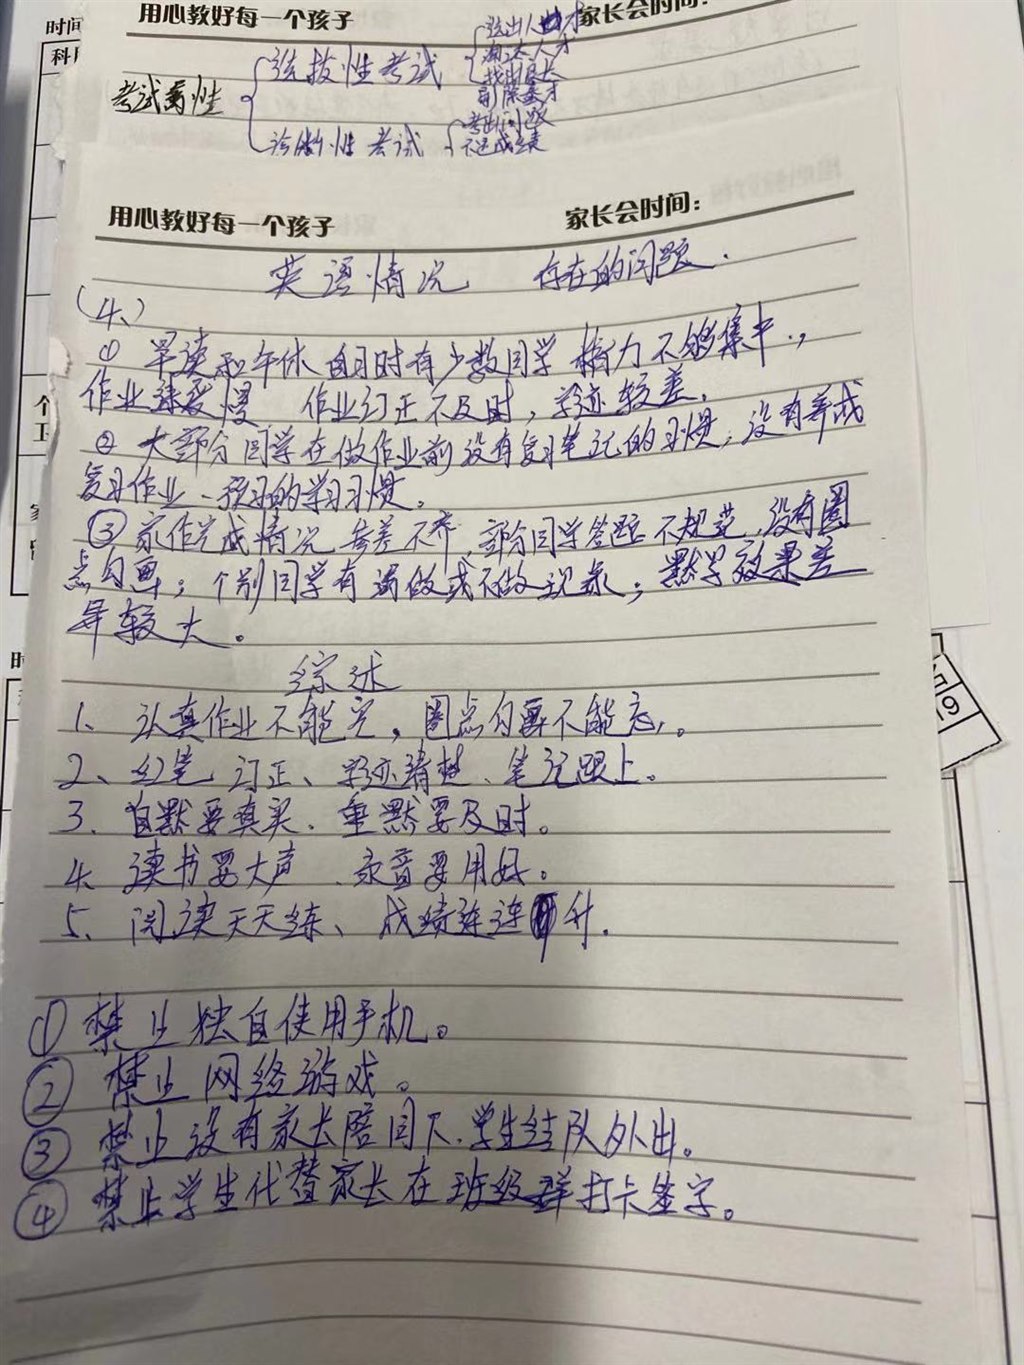 时间
用心教好每一个孩子 家长会时间：
科
考试属性
选拔性考试
选出人才
淘汰人才
诊断性考试
考出问题
用心教好每一个孩子 家长会时间：
英语情况 存在的问题.
(4、)
① 早读和午休自习时有少数同学精力不够集中，
作业速度慢 作业订正不及时，字迹较差.
② 大部分同学在做作业前没有复习笔记的习惯，没有养成
复习作业一预习的学习习惯。
③ 家作完成情况参差不齐，部分同学答题不规范，没有圈
点勾画；个别同学有漏做或不做现象；默写效果差
异较大。
综述
1、认真作业不能完，圈点勾画不能忘。
2、红笔订正、字迹清楚、笔记跟上。
3、自默要真实、重默要及时。
4、读书要大声、录音要用好。
5、阅读天天练、成绩连连升.
① 禁止独自使用手机。
② 禁止网络游戏。
③ 禁止没有家长陪同下.学生结队外出。
④ 禁止学生代替家长在班级群打卡签字。